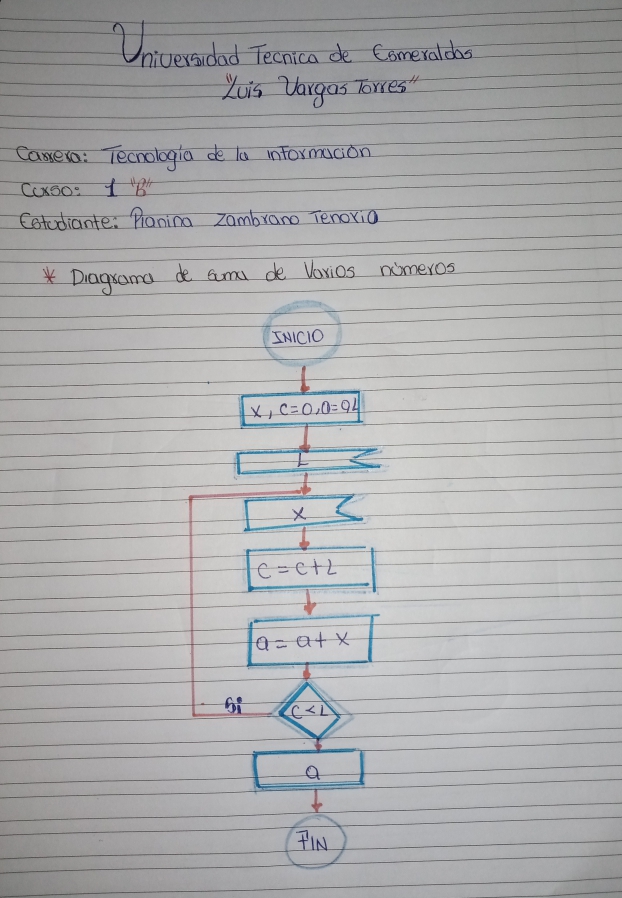 Universidad Tecnica de Esmeraldas
"Luis Vargas Torres"
Carrera: Tecnología de la información
Curso: 1 "B"
Estudiante: Pianina Zambrano Tenorio
* Diagrama de suma de Varios números
INICIO
x, c=0, a=0, L
L
x
c = c + L
a = a + x
Si
c < L
a
FIN